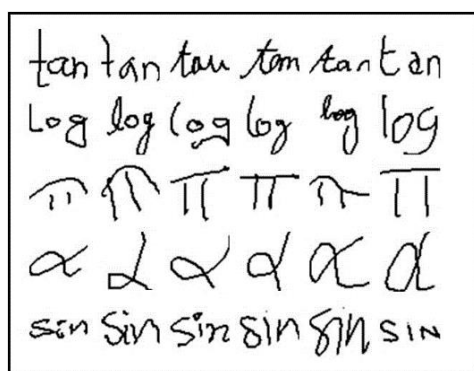 tan tan tan tan tan tan
Log log log log log log
π π π π π π
α α α α α α
sin sin sin sin sin SIN